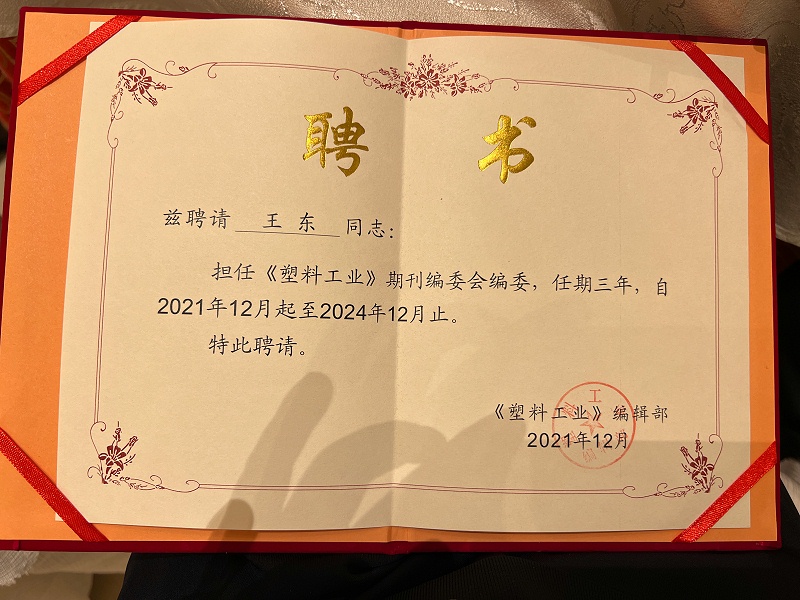 聘 书
兹聘请 王 东 同志：
担任《塑料工业》期刊编委会编委，任期三年，自
2021年12月起至2024年12月止。
特此聘请。
《塑料工业》编辑部
2021年12月